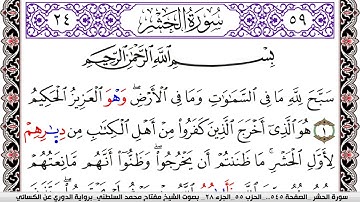 ٥٩ سُورَةُ الحَشْرِ ٢٤
بِسْمِ اللَّهِ الرَّحْمَٰنِ الرَّحِيمِ
سَبَّحَ لِلَّهِ مَا فِي السَّمَٰوَٰتِ وَمَا فِي الْأَرْضِ وَهْوَ الْعَزِيزُ الْحَكِيمُ
١ هُوَ الَّذِي أَخْرَجَ الَّذِينَ كَفَرُوا مِنْ أَهْلِ الْكِتَٰبِ مِن دِيَٰرِهِمْ
لِأَوَّلِ الْحَشْرِ مَا ظَنَنتُمْ أَن يَخْرُجُوا وَظَنُّوا أَنَّهُم مَّانِعَتُهُمْ
سورة الحشر الصفحة ٥٤٥... الحزب ٥٥ الجزء ٢٨ بصوت الشيخ مفتاح محمد السلطني برواية الدوري عن الكسائي